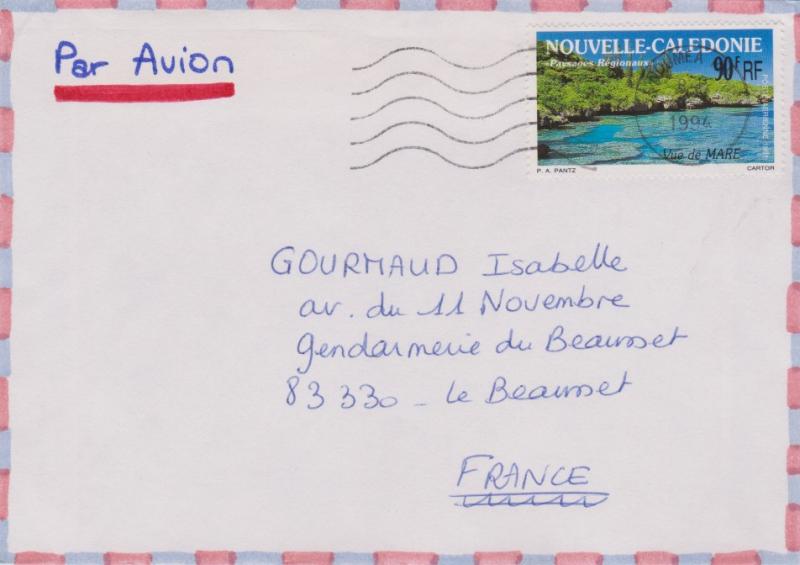 Par Avion
NOUVELLE-CALEDONIE
Paysages Régionaux
90F RF
NOUMEA
1994
Vue de MARE
P. A. PANTZ
CARTOR
GOURMAUD Isabelle
av. du 11 Novembre
Gendarmerie du Beausset
83330 - Le Beausset
FRANCE